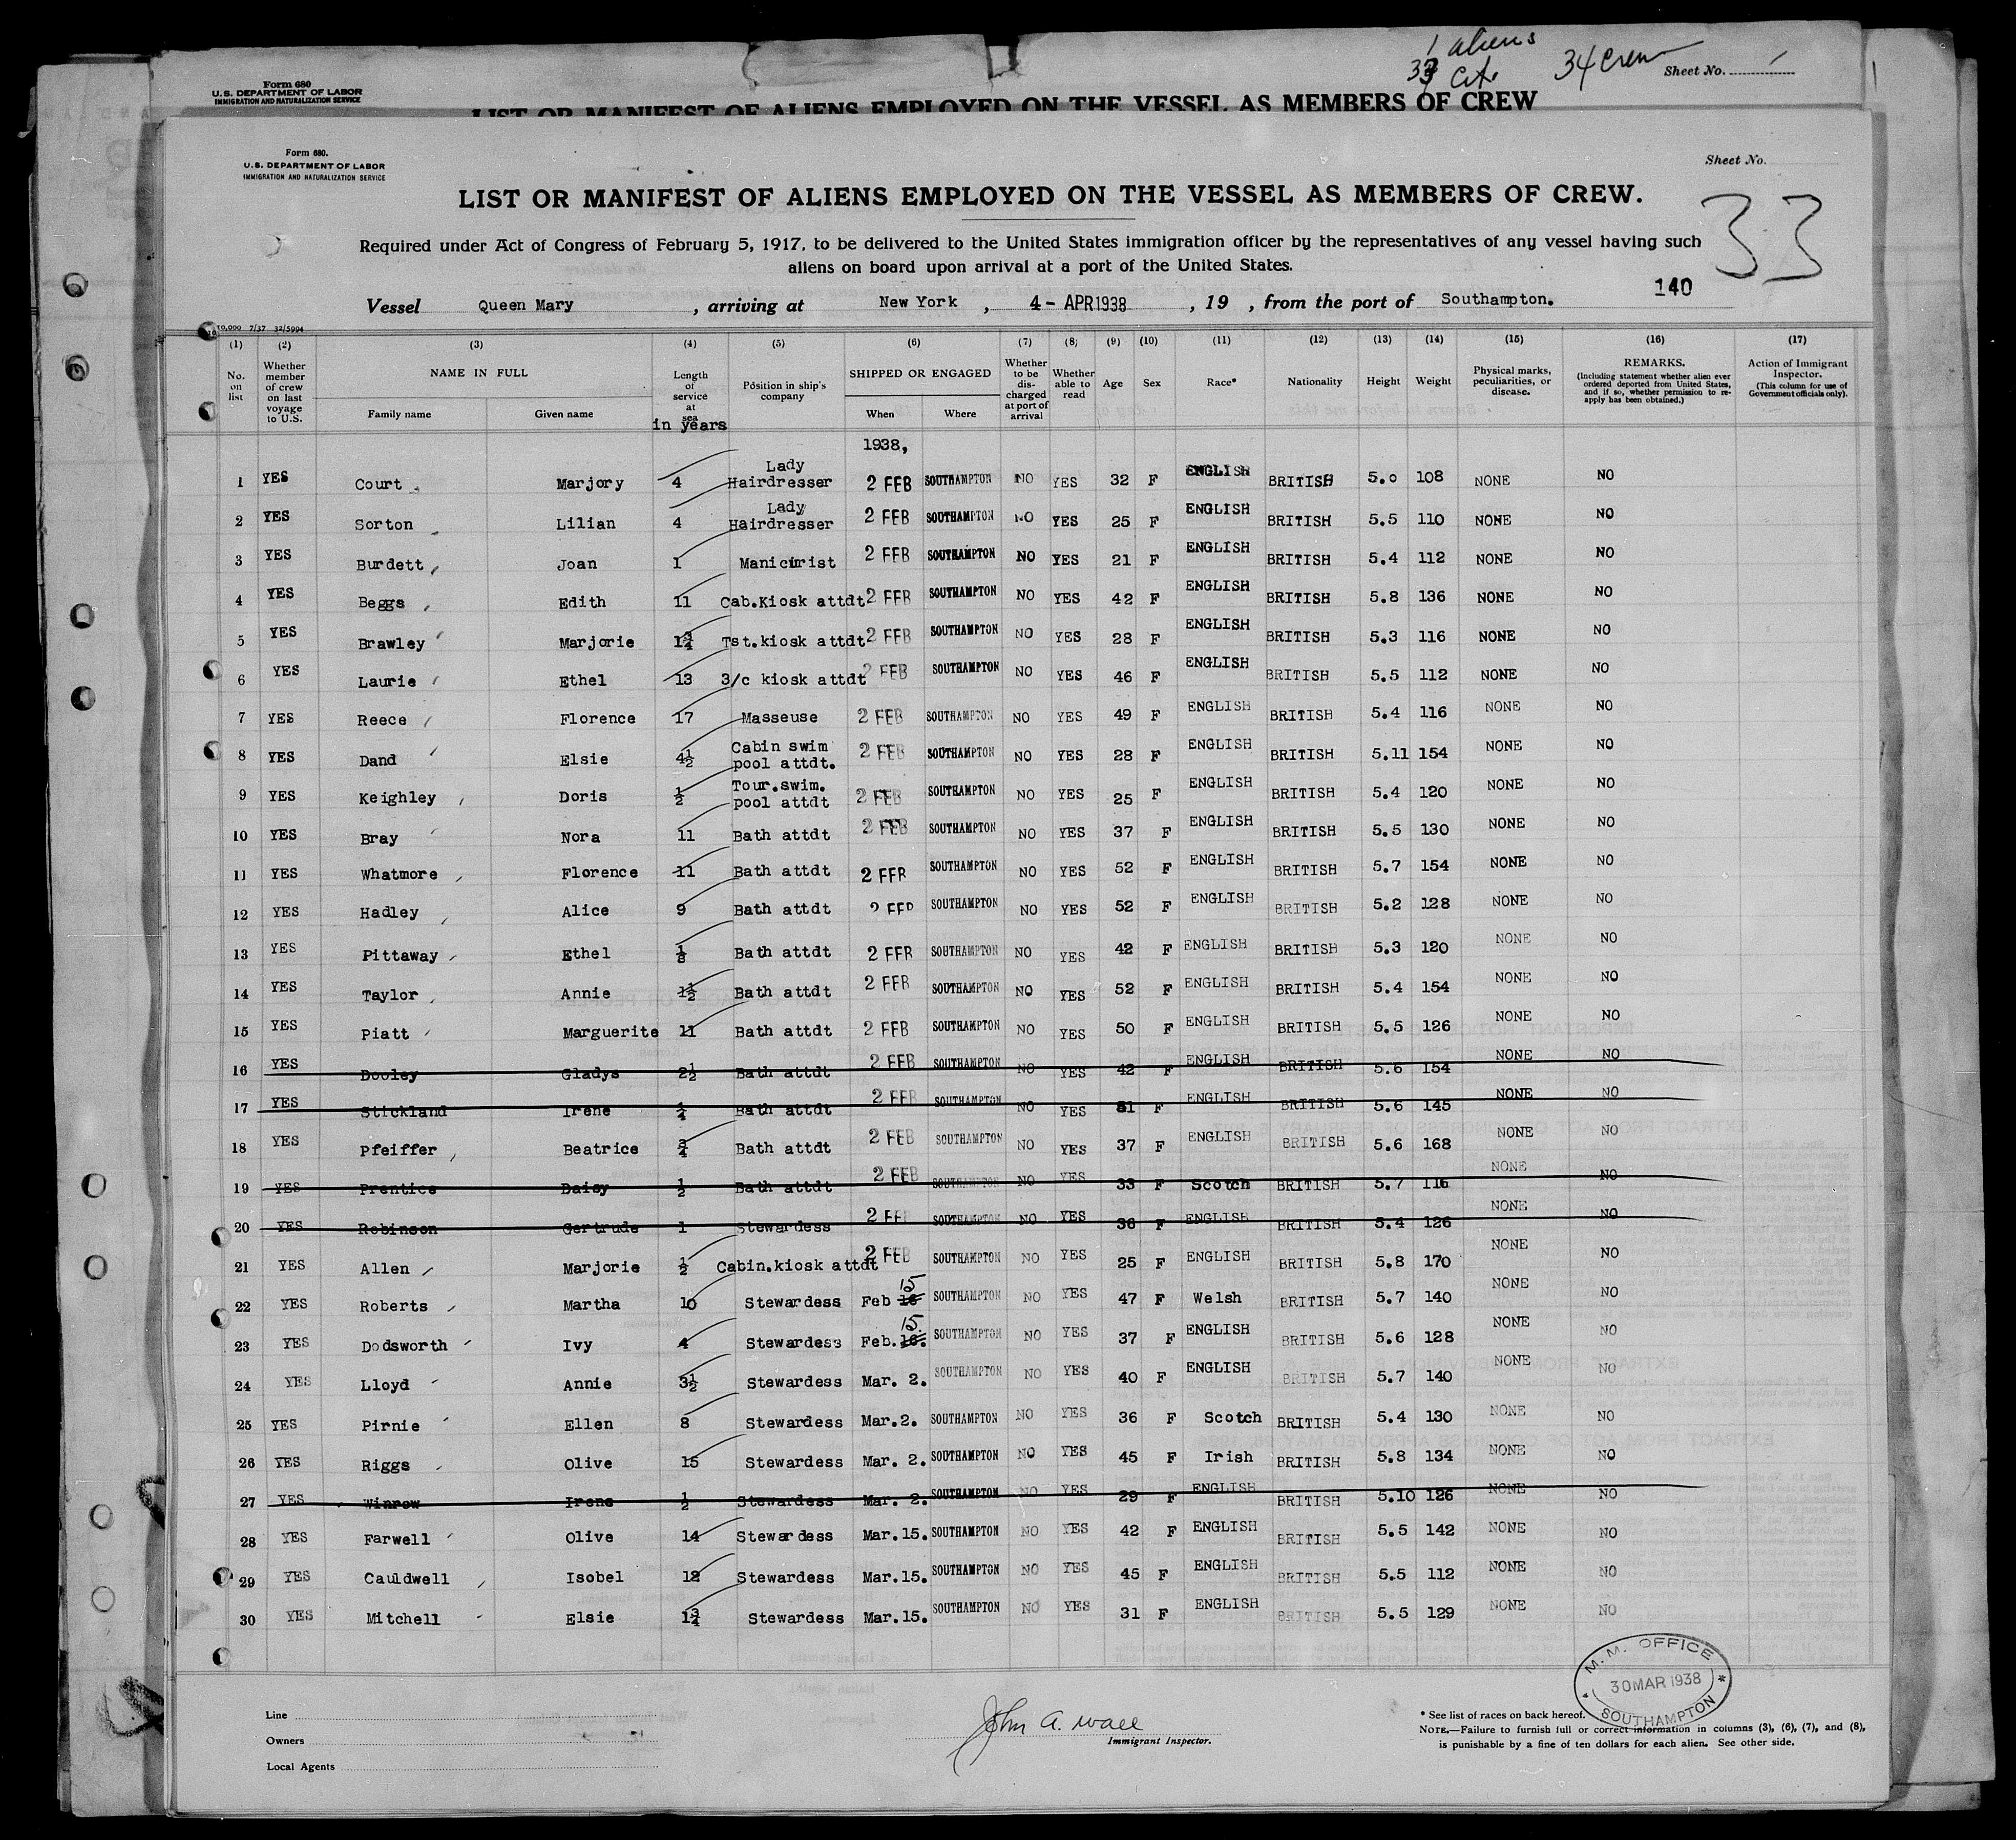 1 aliens
33 Cit.
34 Crew
Sheet No. 1
Form 680
U.S. DEPARTMENT OF LABOR
IMMIGRATION AND NATURALIZATION SERVICE
LIST OR MANIFEST OF ALIENS EMPLOYED ON THE VESSEL AS MEMBERS OF CREW
Form 680.
U.S. DEPARTMENT OF LABOR
IMMIGRATION AND NATURALIZATION SERVICE
Sheet No.
LIST OR MANIFEST OF ALIENS EMPLOYED ON THE VESSEL AS MEMBERS OF CREW.
33
Required under Act of Congress of February 5, 1917, to be delivered to the United States immigration officer by the representatives of any vessel having such
aliens on board upon arrival at a port of the United States.
140
Vessel Queen Mary, arriving at New York, 4 - APR 1938, 19 , from the port of Southampton.
10,000 7/37 32/5994
(1) (2) (3) (4) (5) (6) (7) (8) (9) (10) (11) (12) (13) (14) (15) (16) (17)
No. on list
Whether member of crew on last voyage to U.S.
NAME IN FULL
Family name
Given name
Length of service at sea
in years
Position in ship's company
SHIPPED OR ENGAGED
When
Where
Whether to be discharged at port of arrival
Whether able to read
Age
Sex
Race*
Nationality
Height
Weight
Physical marks, peculiarities, or disease.
REMARKS.
(Including statement whether alien ever ordered deported from United States, and if so, whether permission to re-apply has been obtained.)
Action of Immigrant Inspector.
(This column for use of Government officials only).
1938,
1 YES Court Marjory 4 Lady Hairdresser 2 FEB SOUTHAMPTON NO YES 32 F ENGLISH BRITISH 5.0 108 NONE NO
2 YES Sorton Lilian 4 Lady Hairdresser 2 FEB SOUTHAMPTON NO YES 25 F ENGLISH BRITISH 5.5 110 NONE NO
3 YES Burdett Joan 1 Manicurist 2 FEB SOUTHAMPTON NO YES 21 F ENGLISH BRITISH 5.4 112 NONE NO
4 YES Beggs Edith 11 Cab.Kiosk attdt 2 FEB SOUTHAMPTON NO YES 42 F ENGLISH BRITISH 5.8 136 NONE NO
5 YES Brawley Marjorie 1¾ Tst.kiosk attdt 2 FEB SOUTHAMPTON NO YES 28 F ENGLISH BRITISH 5.3 116 NONE NO
6 YES Laurie Ethel 13 3/c kiosk attdt 2 FEB SOUTHAMPTON NO YES 46 F ENGLISH BRITISH 5.5 112 NONE NO
7 YES Reece Florence 17 Masseuse 2 FEB SOUTHAMPTON NO YES 49 F ENGLISH BRITISH 5.4 116 NONE NO
8 YES Dand Elsie 4½ Cabin swim pool attdt. 2 FEB SOUTHAMPTON NO YES 28 F ENGLISH BRITISH 5.11 154 NONE NO
9 YES Keighley Doris ½ Tour.swim. pool attdt 2 FEB SOUTHAMPTON NO YES 25 F ENGLISH BRITISH 5.4 120 NONE NO
10 YES Bray Nora 11 Bath attdt 2 FEB SOUTHAMPTON NO YES 37 F ENGLISH BRITISH 5.5 130 NONE NO
11 YES Whatmore Florence 11 Bath attdt 2 FEB SOUTHAMPTON NO YES 52 F ENGLISH BRITISH 5.7 154 NONE NO
12 YES Hadley Alice 9 Bath attdt 2 FEB SOUTHAMPTON NO YES 52 F ENGLISH BRITISH 5.2 128 NONE NO
13 YES Pittaway Ethel Bath attdt 2 FEB SOUTHAMPTON NO YES 42 F ENGLISH BRITISH 5.3 120 NONE NO
14 YES Taylor Annie 1½ Bath attdt 2 FEB SOUTHAMPTON NO YES 52 F ENGLISH BRITISH 5.4 154 NONE NO
15 YES Piatt Marguerite 11 Bath attdt 2 FEB SOUTHAMPTON NO YES 50 F ENGLISH BRITISH 5.5 126 NONE NO
16 YES Dooley Gladys 2½ Bath attdt 2 FEB SOUTHAMPTON NO YES 42 F ENGLISH BRITISH 5.6 154 NONE NO
17 YES Stickland Irene ¼ Bath attdt 2 FEB SOUTHAMPTON NO YES 31 F ENGLISH BRITISH 5.6 145 NONE NO
18 YES Pfeiffer Beatrice ¾ Bath attdt 2 FEB SOUTHAMPTON NO YES 37 F ENGLISH BRITISH 5.6 168 NONE NO
19 YES Prentice Daisy ½ Bath attdt 2 FEB SOUTHAMPTON NO YES 33 F Scotch BRITISH 5.7 116 NONE NO
20 YES Robinson Gertrude 1 Stewardess 2 FEB SOUTHAMPTON NO YES 36 F ENGLISH BRITISH 5.4 126 NONE NO
21 YES Allen Marjorie ½ Cabin.kiosk attdt 2 FEB SOUTHAMPTON NO YES 25 F ENGLISH BRITISH 5.8 170 NONE NO
22 YES Roberts Martha 10 Stewardess Feb 15 SOUTHAMPTON NO YES 47 F Welsh BRITISH 5.7 140 NONE NO
23 YES Dodsworth Ivy 4 Stewardess Feb. 15. SOUTHAMPTON NO YES 37 F ENGLISH BRITISH 5.6 128 NONE NO
24 YES Lloyd Annie 3½ Stewardess Mar. 2. SOUTHAMPTON NO YES 40 F ENGLISH BRITISH 5.7 140 NONE NO
25 YES Pirnie Ellen 8 Stewardess Mar.2. SOUTHAMPTON NO YES 36 F Scotch BRITISH 5.4 130 NONE NO
26 YES Riggs Olive 15 Stewardess Mar. 2. SOUTHAMPTON NO YES 45 F Irish BRITISH 5.8 134 NONE NO
27 YES Winrow Irene ½ Stewardess Mar. 2. SOUTHAMPTON NO YES 29 F ENGLISH BRITISH 5.10 126 NONE NO
28 YES Farwell Olive 14 Stewardess Mar.15. SOUTHAMPTON NO YES 42 F ENGLISH BRITISH 5.5 142 NONE NO
29 YES Cauldwell Isobel 12 Stewardess Mar.15. SOUTHAMPTON NO YES 45 F ENGLISH BRITISH 5.5 112 NONE NO
30 YES Mitchell Elsie 1¾ Stewardess Mar.15. SOUTHAMPTON NO YES 31 F ENGLISH BRITISH 5.5 129 NONE NO
M.M. OFFICE
30 MAR 1938
SOUTHAMPTON
Line
Owners
Local Agents
John A. Wall
Immigrant Inspector.
* See list of races on back hereof.
NOTE.—Failure to furnish full or correct information in columns (3), (6), (7), and (8),
is punishable by a fine of ten dollars for each alien. See other side.